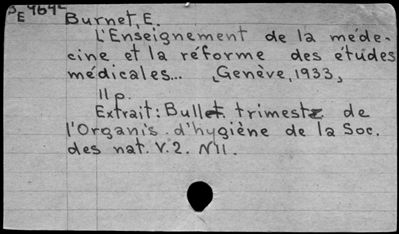 Burnet, E.
L'Enseignement de la méde-
cine et la réforme des études
médicales... [Genève, 1933]
11 p.
Extrait: Bullet. trimestr. de
l'Organis. d'hygiène de la Soc.
des nat. V.2. N11.